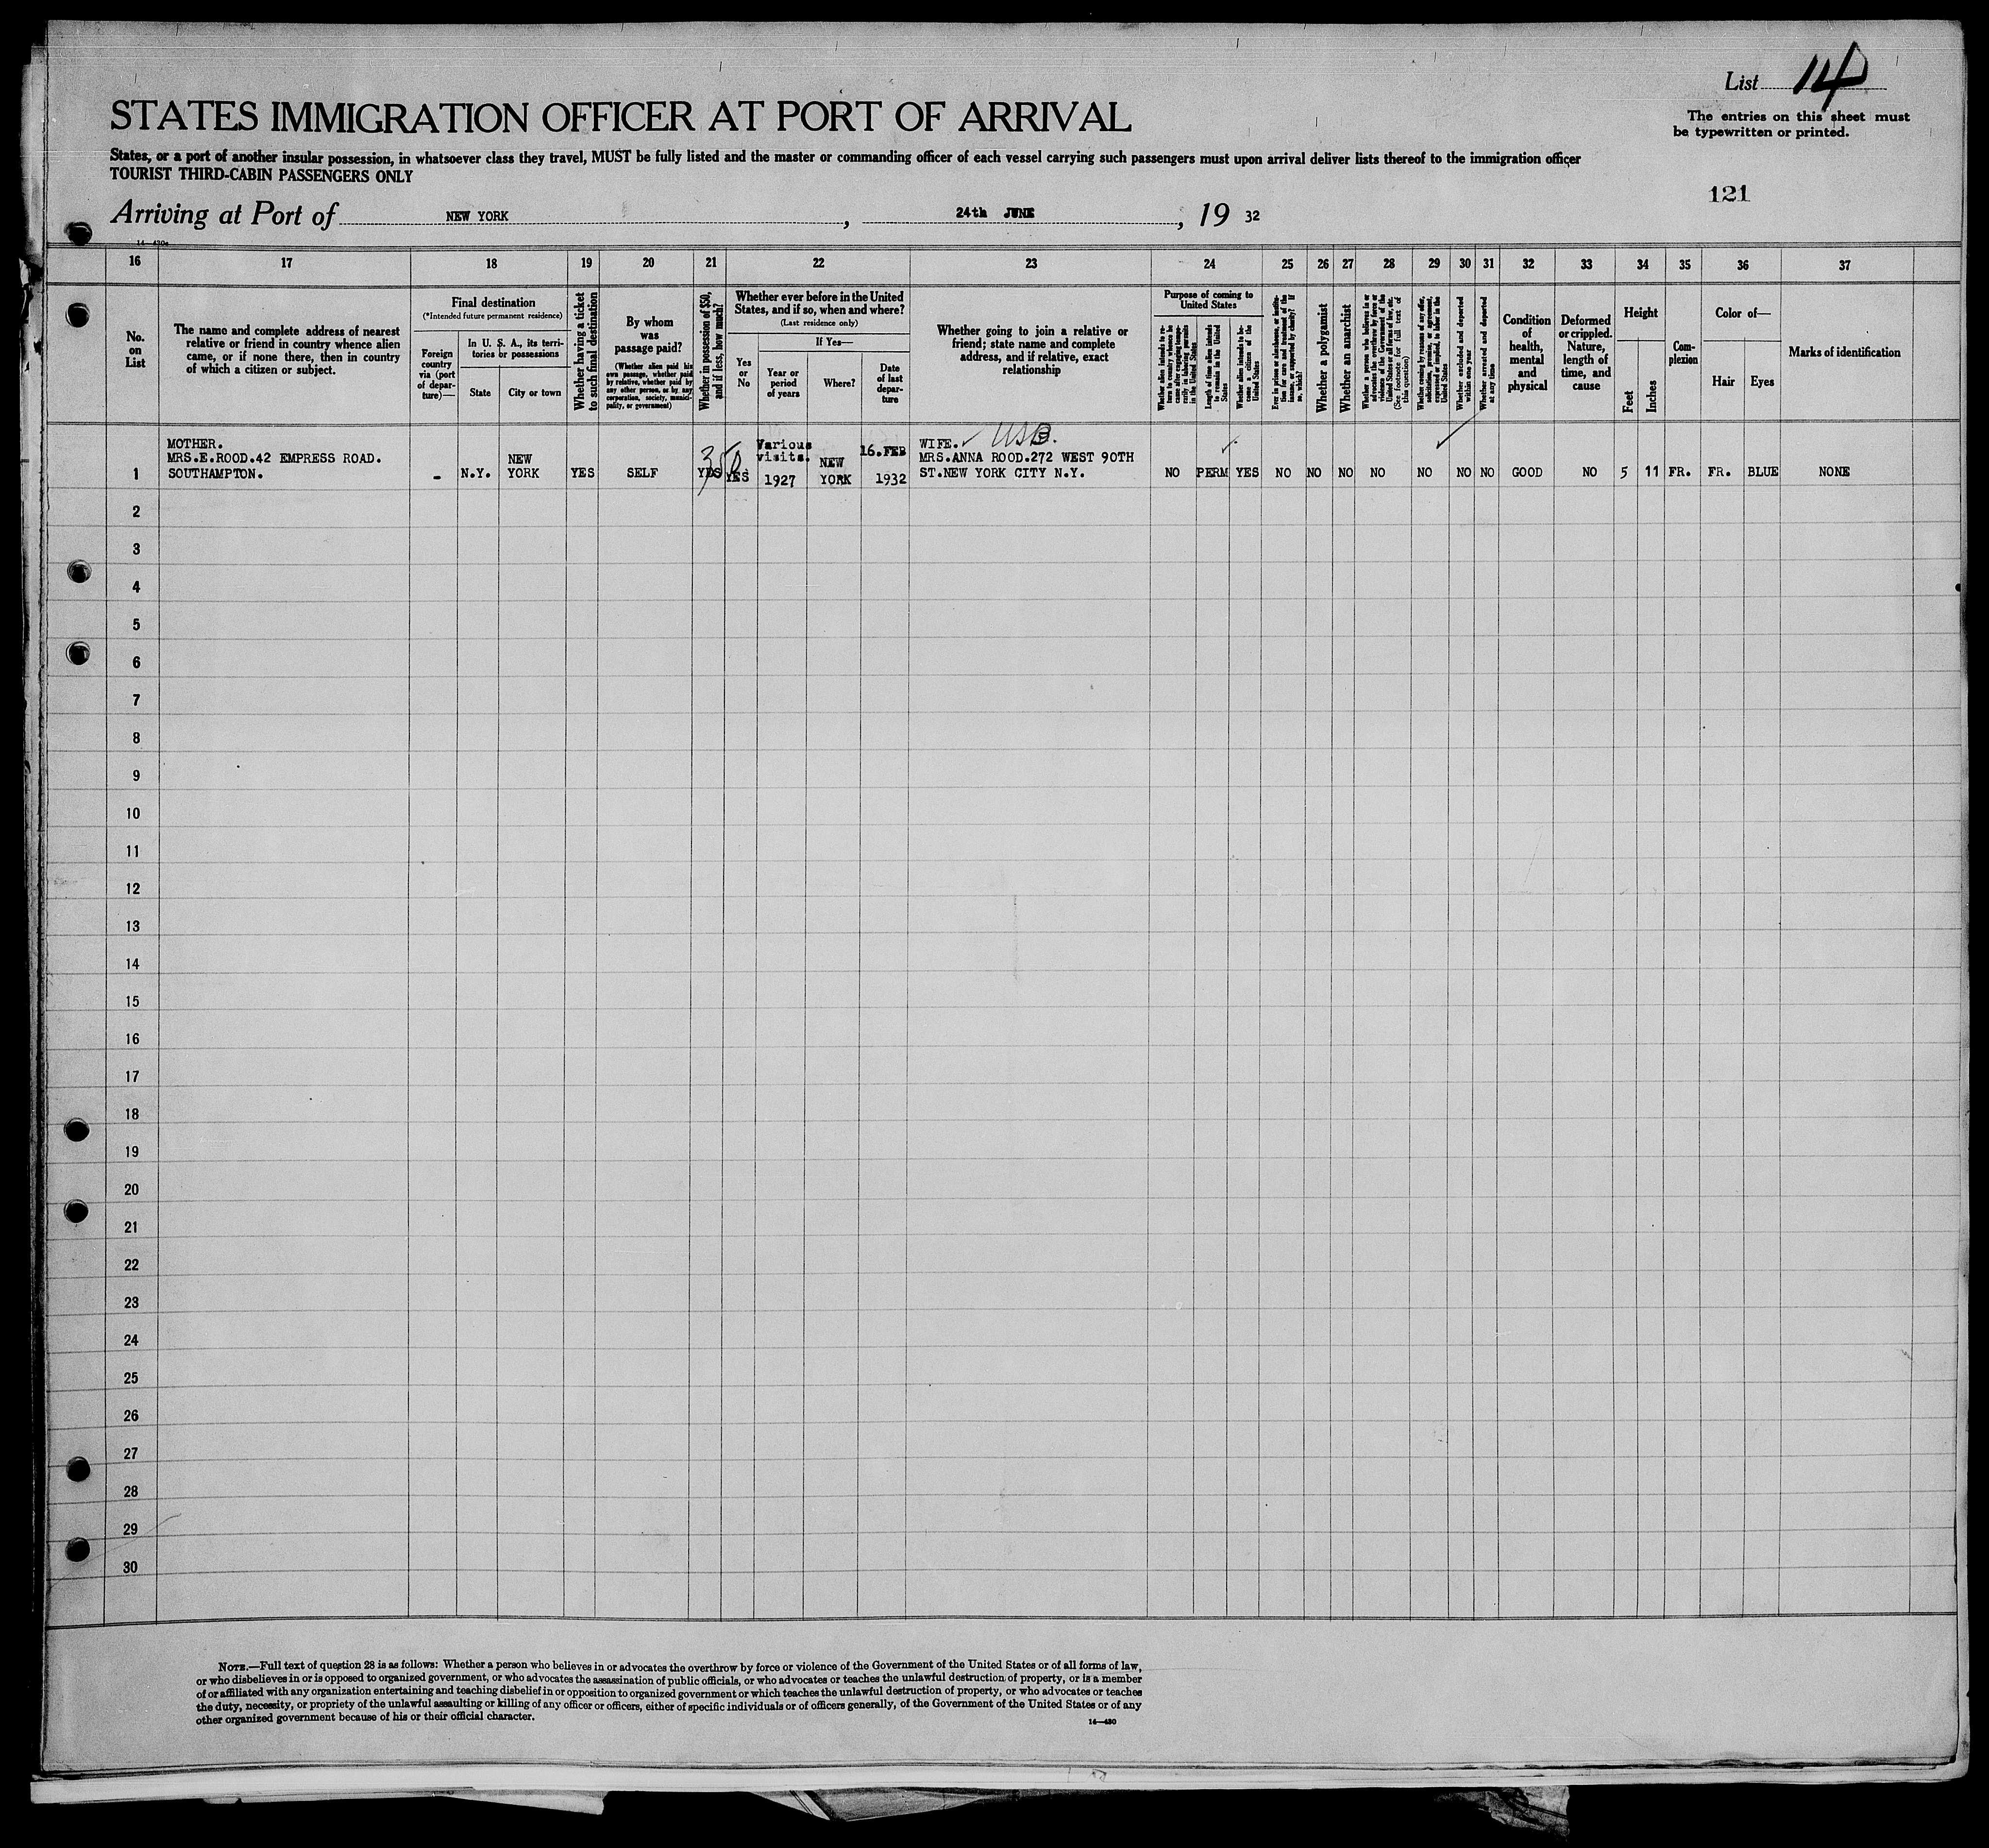 List 14
The entries on this sheet must
be typewritten or printed.
STATES IMMIGRATION OFFICER AT PORT OF ARRIVAL
States, or a port of another insular possession, in whatsoever class they travel, MUST be fully listed and the master or commanding officer of each vessel carrying such passengers must upon arrival deliver lists thereof to the immigration officer
TOURIST THIRD-CABIN PASSENGERS ONLY
121
Arriving at Port of NEW YORK, 24th JUNE, 19 32
16 17 18 19 20 21 22 23 24 25 26 27 28 29 30 31 32 33 34 35 36 37
No.
on
List
The name and complete address of nearest
relative or friend in country whence alien
came, or if none there, then in country
of which a citizen or subject.
Final destination
(*Intended future permanent residence)
Foreign
country
via (port
of depar-
ture)—
In U. S. A., its terri-
tories or possessions
State
City or town
Whether having a ticket
to such final destination
By whom
was
passage paid?
(Whether alien paid his
own passage, whether paid
by relative, whether paid by
any other person, or by any
corporation, society, munici-
pality, or government)
Whether in possession of $50,
and if less, how much?
Whether ever before in the United
States, and if so, when and where?
(Last residence only)
Yes
or
No
If Yes—
Year or
period
of years
Where?
Date
of last
depar-
ture
Whether going to join a relative or
friend; state name and complete
address, and if relative, exact
relationship
Purpose of coming to
United States
Whether alien intends to re-
turn to country whence he
came after engaging tempo-
rarily in laboring pursuits
in the United States
Length of time alien intends
to remain in the United
States
Whether alien intends to be-
come a citizen of the
United States
Ever in prison or almshouse, or institu-
tion for care and treatment of the
insane, or supported by charity? If
so, which?
Whether a polygamist
Whether an anarchist
Whether a person who believes in or
advocates the overthrow by force or
violence of the Government of the
United States or all forms of law, etc.
(See footnote for full text of
this question)
Whether coming by reasons of any offer,
solicitation, promise, or agreement,
expressed or implied, to labor in the
United States
Whether excluded and deported
within one year
Whether arrested and deported
at any time
Condition
of
health,
mental
and
physical
Deformed
or crippled.
Nature,
length of
time, and
cause
Height
Feet
Inches
Com-
plexion
Color of—
Hair
Eyes
Marks of identification
MOTHER. Various visits. 16.FEB WIFE. USB.
MRS.E.ROOD.42 EMPRESS ROAD. NEW NEW MRS.ANNA ROOD.272 WEST 90TH
1 SOUTHAMPTON. - N.Y. YORK YES SELF YES 50 YES 1927 YORK 1932 ST.NEW YORK CITY N.Y. NO PERM YES NO NO NO NO NO NO NO GOOD NO 5 11 FR. FR. BLUE NONE
2
3
4
5
6
7
8
9
10
11
12
13
14
15
16
17
18
19
20
21
22
23
24
25
26
27
28
29
30
NOTE.—Full text of question 28 is as follows: Whether a person who believes in or advocates the overthrow by force or violence of the Government of the United States or of all forms of law,
or who disbelieves in or is opposed to organized government, or who advocates the assassination of public officials, or who advocates or teaches the unlawful destruction of property, or is a member
of or affiliated with any organization entertaining and teaching disbelief in or opposition to organized government or which teaches the unlawful destruction of property, or who advocates or teaches
the duty, necessity, or propriety of the unlawful assaulting or killing of any officer or officers, either of specific individuals or of officers generally, of the Government of the United States or of any
other organized government because of his or their official character.
14—430